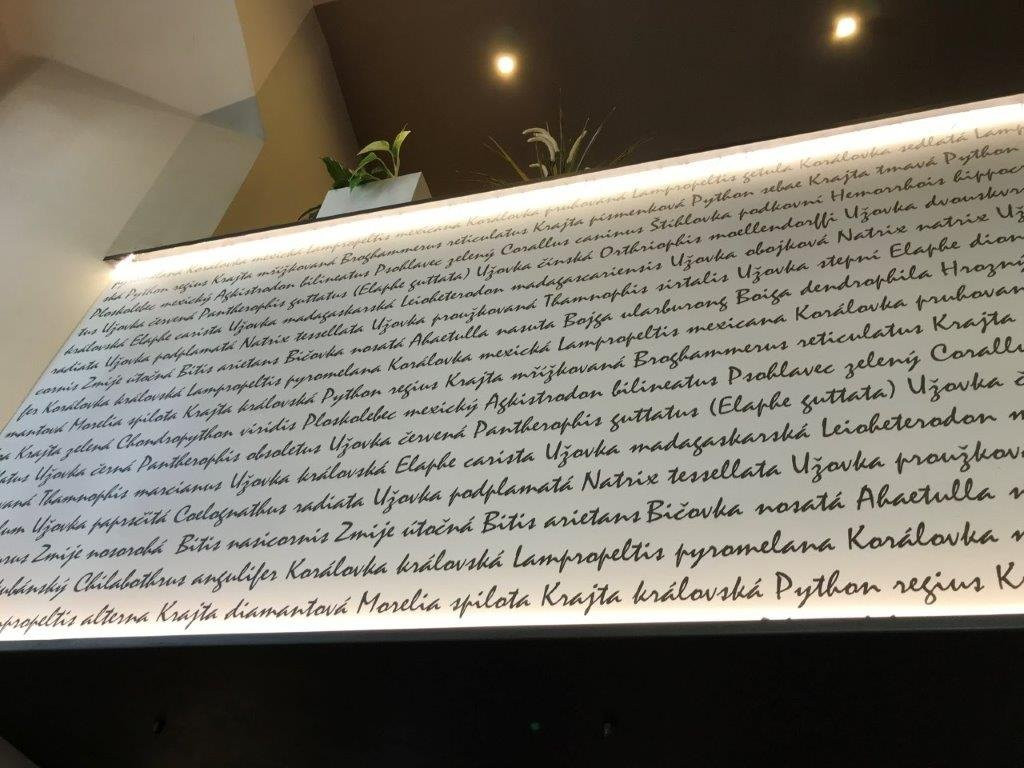 Korálovka mexická Lampropeltis mexicana Korálovka pruhovaná Lampropeltis getula Korálovka sedlatá
ská Python regius Krajta mřížkovaná Broghammerus reticulatus Krajta písmenková Python sebae Krajta tmavá Python
Ploskolebec mexický Agkistrodon bilineatus Psohlavec zelený Corallus caninus Štíhlovka podkovní Hemorrhois hippoc
tus Užovka červená Pantherophis guttatus (Elaphe guttata) Užovka čínská Orthriophis moellendorffi Užovka dvouskvr
královská Elaphe carista Užovka madagaskarská Leioheterodon madagascariensis Užovka obojková Natrix natrix Už
radiata Užovka podplamatá Natrix tessellata Užovka proužkovaná Thamnophis sirtalis Užovka stepní Elaphe dion
cornis Zmije útočná Bitis arietans Bičovka nosatá Ahaetulla nasuta Bojga ularburong Boiga dendrophila Hrozný
fer Korálovka královská Lampropeltis pyromelana Korálovka mexická Lampropeltis mexicana Korálovka pruhovan
mantová Morelia spilota Krajta královská Python regius Krajta mřížkovaná Broghammerus reticulatus Krajta
Krajta zelená Chondropython viridis Ploskolebec mexický Agkistrodon bilineatus Psohlavec zelený Corallu
latus Užovka černá Pantherophis obsoletus Užovka červená Pantherophis guttatus (Elaphe guttata) Užovka č
vaná Thamnophis marcianus Užovka královská Elaphe carista Užovka madagaskarská Leioheterodon m
lum Užovka paprsčitá Coelognathus radiata Užovka podplamatá Natrix tessellata Užovka proužkov
rus Zmije nosorohá Bitis nasicornis Zmije útočná Bitis arietans Bičovka nosatá Ahaetulla n
kubánský Chilabothrus angulifer Korálovka královská Lampropeltis pyromelana Korálovka m
mpropeltis alterna Krajta diamantová Morelia spilota Krajta královská Python regius K